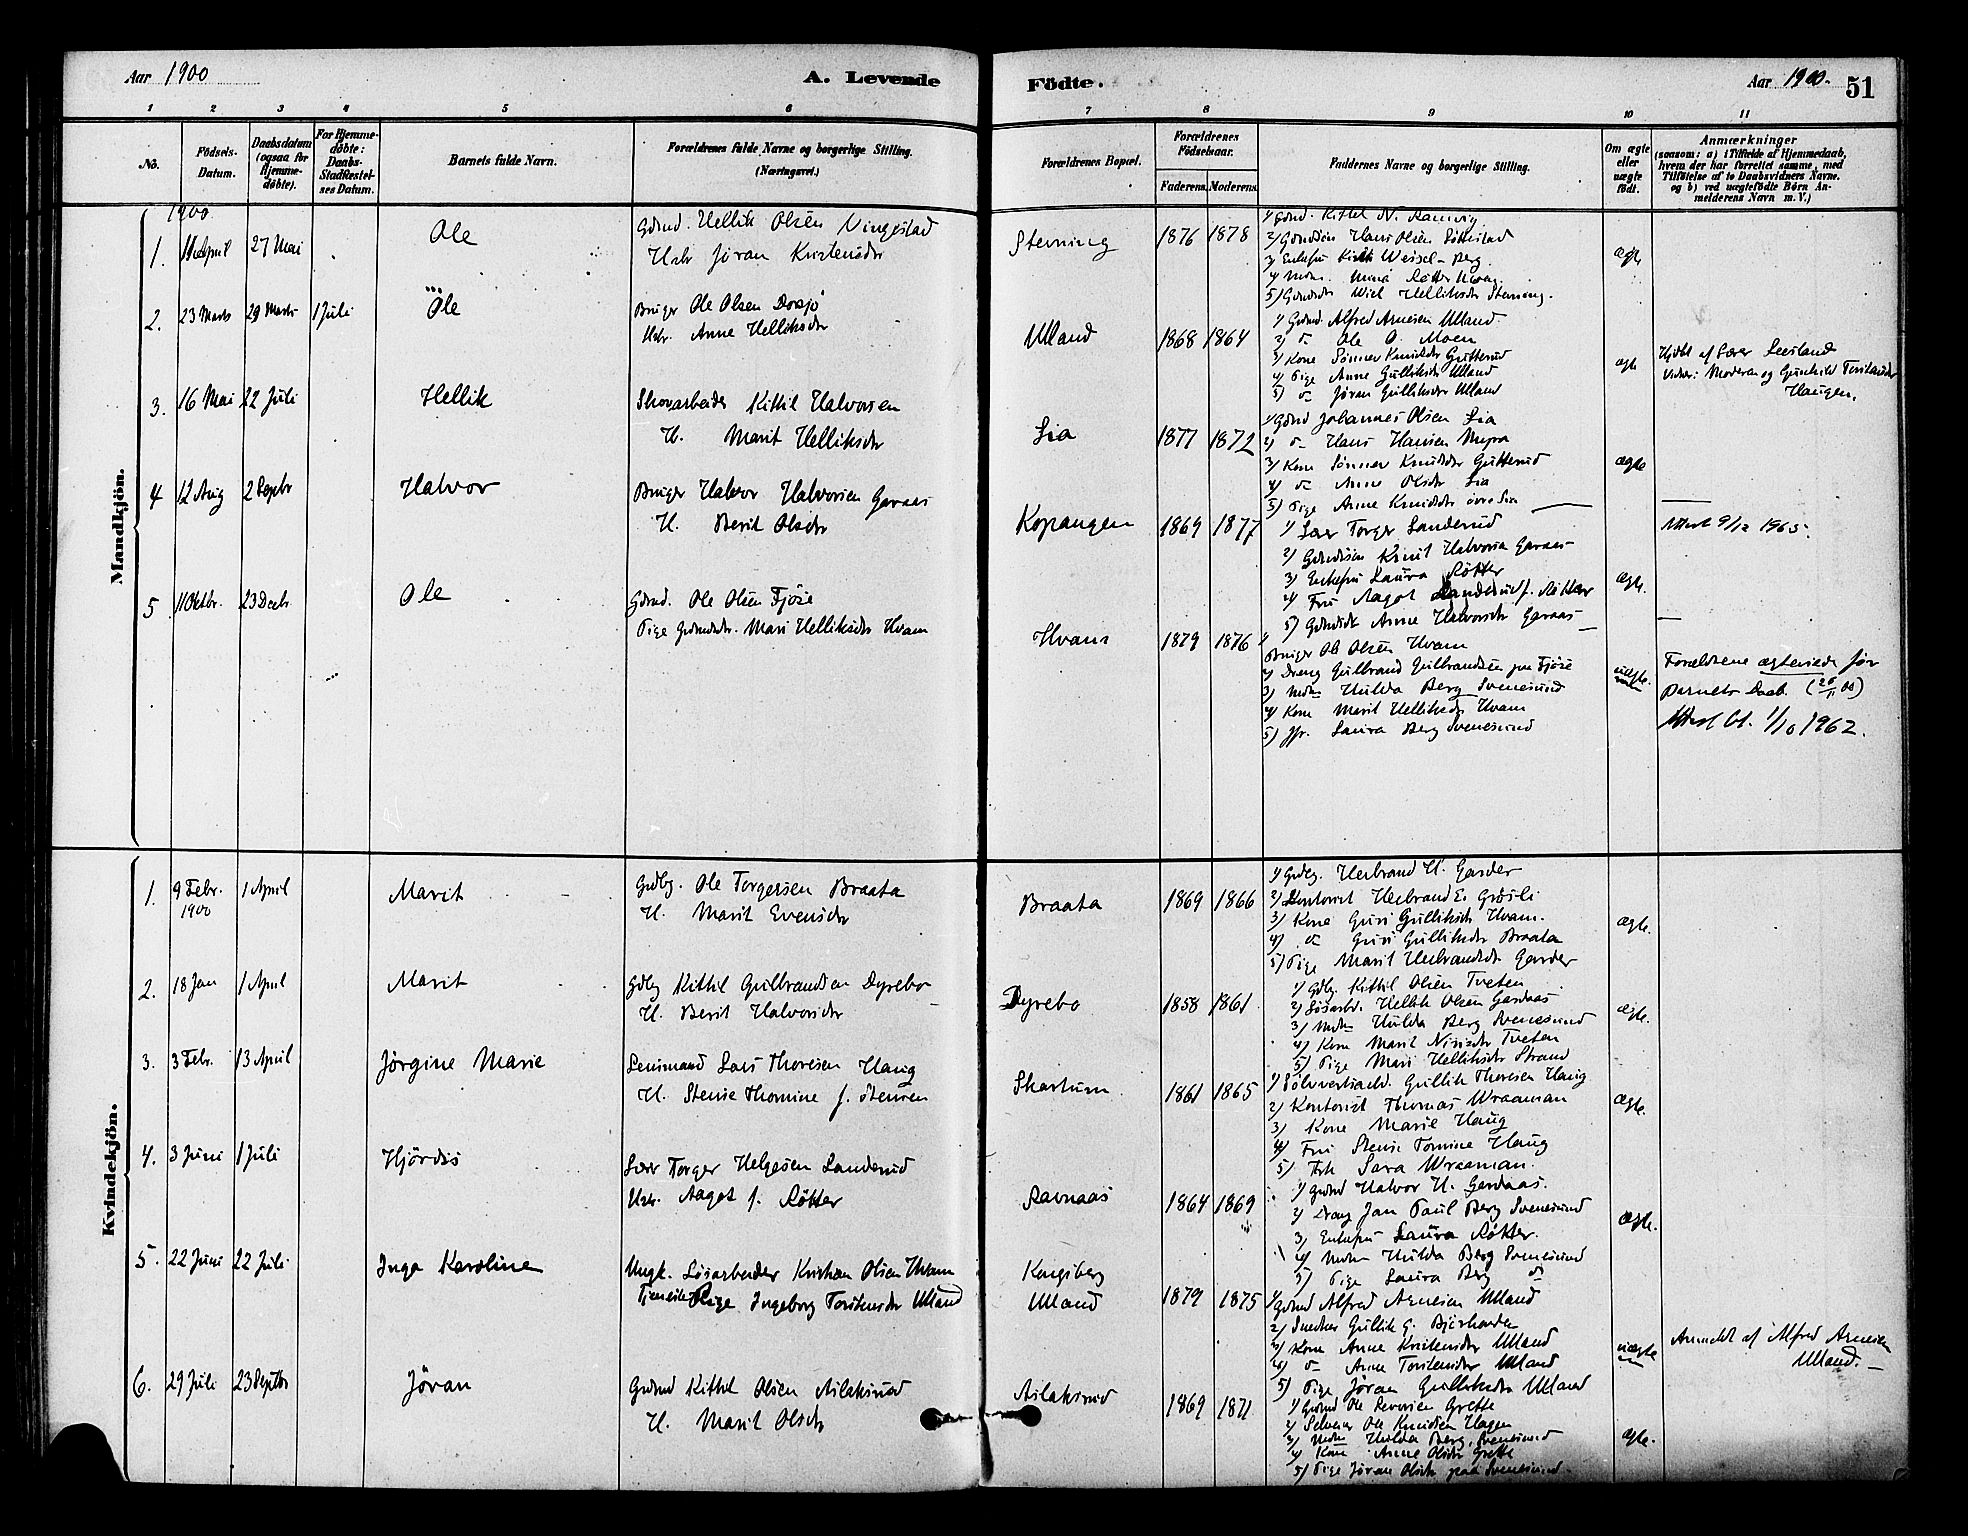 Aar 1900
A. Levende
Födte.
Aar 1900.
51
1 2 3 4 5 6 7 8 9 10 11
No.
Födsels-Datum.
Daabsdatum (ogsaa for Hjemmedøbte).
For Hjemmedøbte: Daabs-Stadfæstelses Datum.
Barnets fulde Navn.
Forældrenes fulde Navne og borgerlige Stilling.
(Næringsvei.)
Forældrenes Bopæl.
Forældrenes Födselsaar.
Faderens. Moderens.
Faddernes Navne og borgerlige Stilling.
Om ægte eller uægte födt.
Anmærkninger
(saasom: a) i Tilfælde af Hjemmedaab, hvem der har forrettet samme, med Tilføielse af to Daabsvidners Navne. og b) ved uægtefödte Börn Anmelderens Navn m. V.)
Mandkjön.
1900
1. 11 April 27 Mai Ole
Gdmd. Hellik Olsen Vingestad
Hstr Jøran Kristensdr
Stevning 1876 1878
1) Gdmd. Kittel N. Ramvig
2) Gdmdsøn Hans Olsen
3) Enkefru Weisel-Berg.
4) Mdm.
5) Gdmdsdr Helliksdr Stevning.
ægte
2. 23 Marts 29 Marts 1 Juli Ole
Bruger Ole Olsen
Hstr. Anne Helliksdr
Ulland 1868 1864
1) Gdmd. Alfred Arnesen Ulland.
2) do Ole O. Moen
3) Kone Sønnev Knudsdr Gutterud
4) Pige Anne Gulliksdr Ulland
5) do Jøran Gulliksdr Ulland
ægte
Hjdbt af Lærer
Vidner: Moderen og Gunhild Torstensdr
Haugen.
3. 16 Mai 22 Juli Hellik
Skovarbeider Kittil Halvorsen
H. Marit Helliksdr
Lia 1877 1872
1) Gdmd Johannes Olsen Lia
2) do Hans Hansen Myra
3) Kone Sønnev Knudsdr Gutterud
4) do Anne Olsdr Lia
5) Pige Anne Knudsdr øvre Lia
ægte
4 12 Aug 2 Septbr Halvor
Bruger Halvor Halvorsen Garaas
H. Berit Olsdr
Kopangen 1869 1877
1) Lær Torger Landerud
2) Gdmdsøn Knut Halvorsen Garaas
3) Enkefru Laura Røtter
4) Fru Aagot Landerud f. Røtter
5) Gdmdsdt Anne Halvorsdr Garaas
ægte.
Attest 9/12 1965.
5 11 Oktbr. 23 Decbr. Ole
Gdmd. Ole Olsen Fjøse
Pige Gdmdsdr. Mari Helliksdr Hvam
Hvam 1879 1876
1) Bruger Ole Olsen Hvam
2) Dreng Gulbrand Gulbrandsen paa Fjøse
3) Mdm Hulda Berg Svenesund
4) Kone Marit Helliksdr Hvam
5) Jfr. Laura Berg Svenesund
uægte.
Forældrene ægteviede før
Barnets Daab. (26/11 00)
Attest 1/10 1962.
Kvindekjön.
1. 9 Febr. 1900 1 April Marit
Gdbg. Ole Torgersen Braata
H. Marit Evensdr
Braata 1869 1866
1) Gdbg. Herbrand H. Garder
2) Kontorist Herbrand E. Grøsli
3) Kone Guri Gulliksdr Hvam.
4) do Guri Gulliksdr Braata
5) Pige Marit Herbrandsdr Garder
ægte.
2. 18 Jan 1 April Marit
Gdbg Kittil Gulbrandsen Dyrebo
H. Berit Halvorsdr
Dyrebo 1858 1861
1) Gdbg. Kittil Olsen Tveten
2) Løsarbd. Hellik Olsen Gardaas
3) Mdm Hulda Berg Svenesund
4) Kone Marit Tveten
5) Pige Mari Helliksdr Strand
ægte.
3. 3 Febr. 13 April Jørgine Marie
Lensmand Lars Thoresen Haug
H. Stense Thomine f. Stensen
Skartum 1861 1865
1) Sølvverksarbd. Gullik Thoresen Haug
2) Kontorist Thomas Wraaman
3) Kone Marie Haug
4) Fru Stense Tomine Haug
5) Frk Sara Wraaman.
ægte.
4. 3 Juni 1 Juli Hjördis
Lærer Torger Helgesen Landerud
Hstr. Aagot f. Røtter
Ravnaas 1864 1869
1) Gdmd Halvor H. Gardaas.
2) Dreng Jan Paul Berg Svenesund
3) Enkefru Laura Røtter.
4) Mdm Hulda Berg Svenesund
5) Pige Laura Berg do
ægte.
5. 22 Juni 22 Juli Inga Karoline
Ungk. Løsarbeider Kristian Olsen Hvam
Tjeneste Pige Ingeborg Torstensdr Ulland
Kongsberg
Ulland 1879 1875
1) Gdmd Alfred Arnesen Ulland
2) Snedker Gullik G.
3) Kone Anne Kristensdr Ulland
4) do Anne Torstensdr Ulland
5) Pige Jøran Gulliksdr Ulland
uægte
Anmeldt af Alfred Arnesen
Ulland.
6. 29 Juli 23 Septbr Jöran
Gdmd Kittil Olsen Aslaksrud
H. Marit Olsdr
Aslaksrud 1869 1871
1) Gdmd Ole Grette
2) Selveier Ole Knudsen Hagen
3) Mdm Hulda Berg, Svenesund
4) Kone Anne Olsdr Grette
5) Pige Jøran Olsdr paa Svenesund.
ægte.